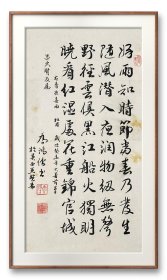 好雨知時節當春乃發生
隨風潛入夜潤物細無聲
野徑雲俱黑江船火獨明
曉看紅濕處花重錦官城